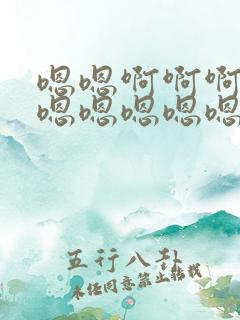 嗯嗯啊啊啊
嗯嗯嗯嗯嗯
五行八卦
未经同意禁止转载